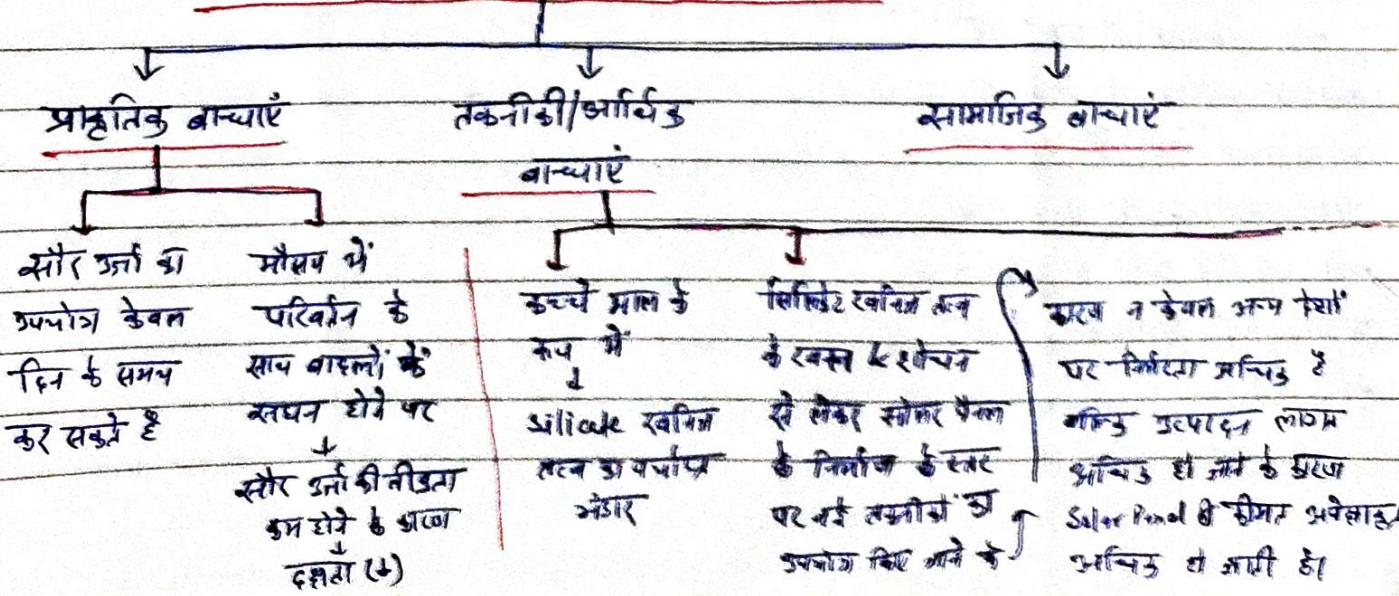 प्राकृतिक बाधाएं
तकनीकी/आर्थिक
बाधाएं
सामाजिक बाधाएं
सौर उर्जा का
उपयोग केवल
दिन के समय
कर सकते है
मौसम में
परिवर्तन के
साथ बादलों के
सघन होने पर
↓
सौर उर्जा की तीव्रता
कम होने के कारण
↓
दक्षता (↓)
कच्चे माल के
रूप में
↓
silicate खनिज
तत्व का पर्याप्त
भंडार
सिलिकेट खनिज तत्व
के खनन & शोधन
से लेकर सोलर पैनल
के निर्माण के स्तर
पर नई तकनीकों का
उपयोग किए जाने के
कारण न केवल अन्य देशों
पर निर्भरता अधिक है
बल्कि उत्पादन लागत
अधिक हो जाने के कारण
Solar Panel की कीमत अपेक्षाकृत
अधिक हो जाती है।